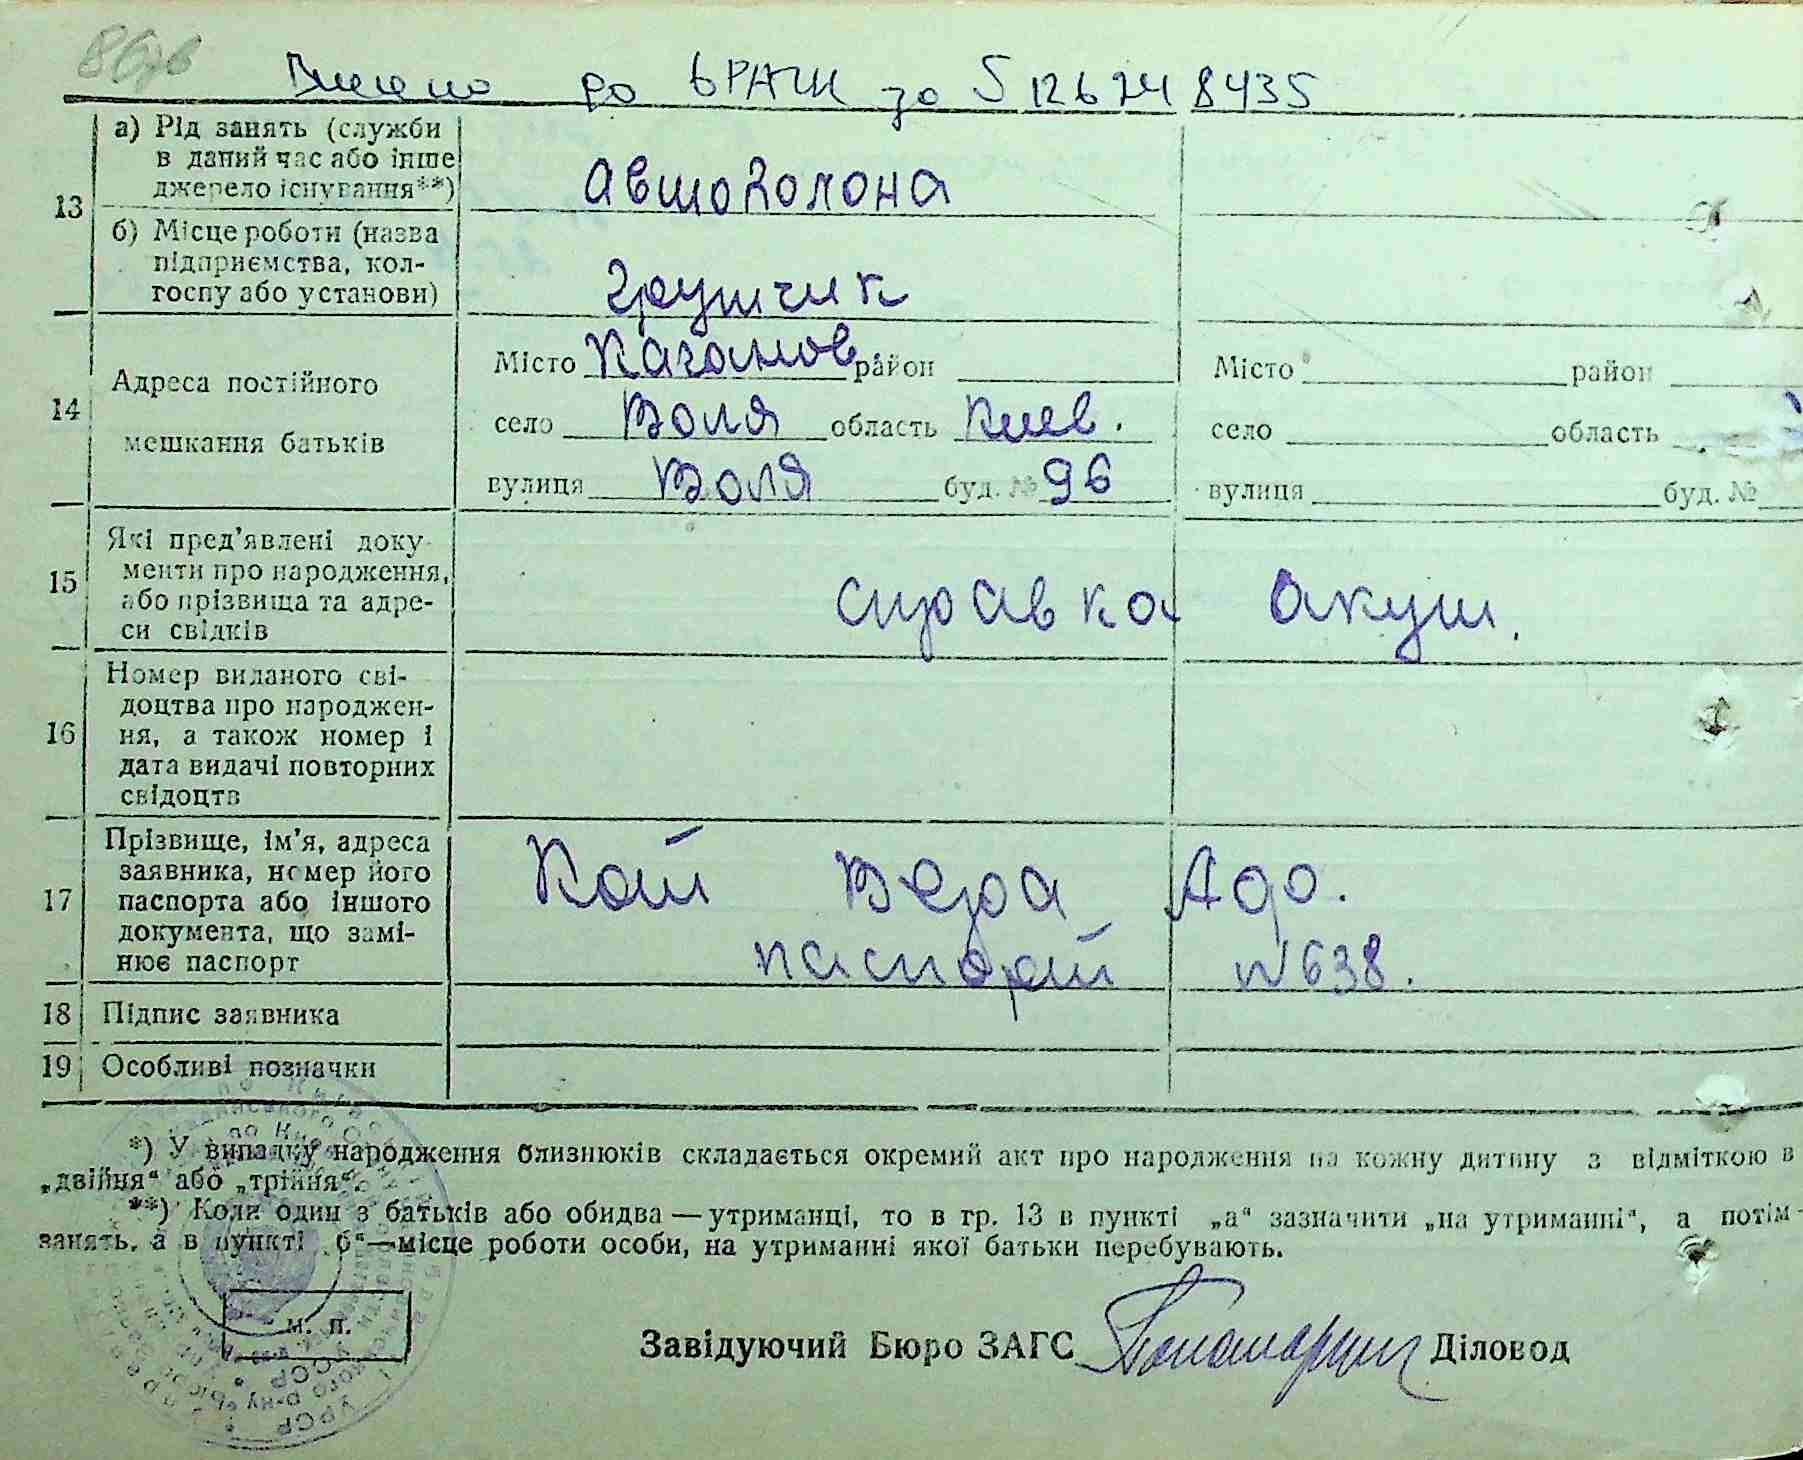 867в
Внесено до ДРАЦС за 5126248435
13 а) Рід занять (служби
в даний час або інше
джерело існування**)
автоколона
б) Місце роботи (назва
підприємства, кол-
госпу або установи)
грущик
14 Адреса постійного
мешкання батьків
Місто Каганов район Місто район
село Воля область Киев. село область
вулиця Воля буд. № 96 вулиця буд. №
15 Які пред'явлені доку-
менти про народження,
або прізвища та адре-
си свідків
справка акуш.
16 Номер виданого сві-
доцтва про народжен-
ня, а також номер і
дата видачі повторних
свідоцтв
17 Прізвище, ім'я, адреса
заявника, номер його
паспорта або іншого
документа, що замі-
нює паспорт
Кот Вера Адо.
паспорт №638.
18 Підпис заявника
19 Особливі позначки
*) У випадку народження близнюків складається окремий акт про народження на кожну дитину з відміткою в
„двійня“ або „трійня“.
**) Коли один з батьків або обидва — утриманці, то в гр. 13 в пункті „а“ зазначити „на утриманні“, а потім
занять, а в пункті „б“—місце роботи особи, на утриманні якої батьки перебувають.
м. п.
Завідуючий Бюро ЗАГС Діловод